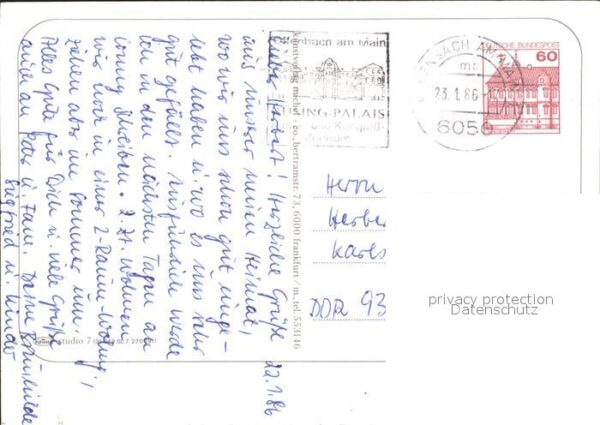 22.1.86
Lieber Herbert! Herzliche Grüße
aus unserer neuen Heimat,
wo wir uns schon gut einge-
lebt haben u. wo es uns sehr
gut gefällt. Ausführlich werde
ich in den nächsten Tagen an
Conny schreiben. Z. Zt. wohnen
wir noch in einer 2-Raum-Wohng.,
ziehen aber im Sommer um.
Alles Gute für Dich u. viele Grüße
auch an
Siegfried u. Kinder
kunstverlag michel + co., bertramstr. 73, 6000 frankfurt/m. tel. 553146
studio 7
Offenbach am Main
SING-PALAIS
und Kongreß-
Zentrum
OFFENBACH AM MAIN
mc
23.1.86
6050
DEUTSCHE BUNDESPOST
60
Herrn
Herber
Karls
DDR 93
privacy protection
Datenschutz